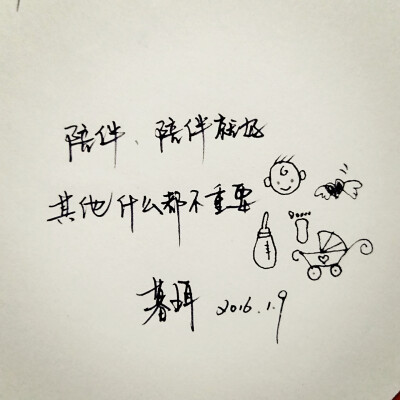 陪伴、陪伴就好
其他什么都不重要
暮珥 2016.1.9